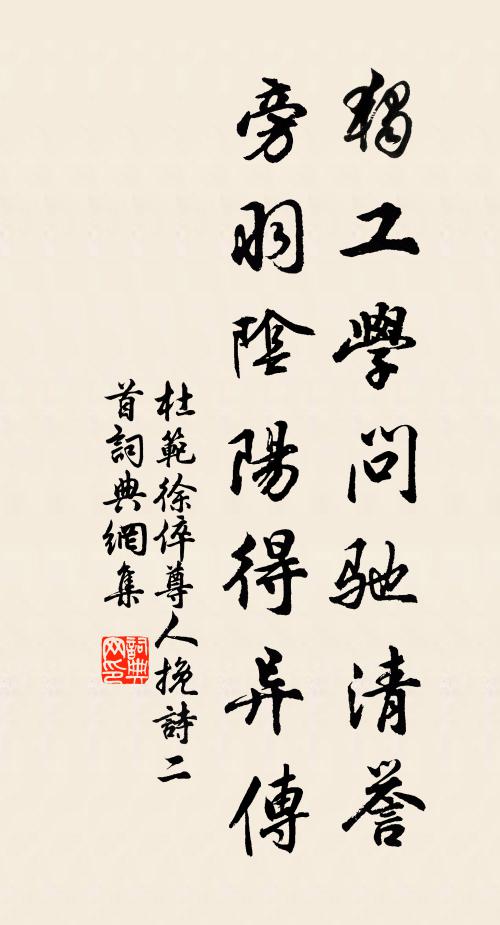 獨工學問馳清譽
旁羽陰陽得异傳
杜範徐倅尊人挽詩二
首詞典網集
詞典
网印